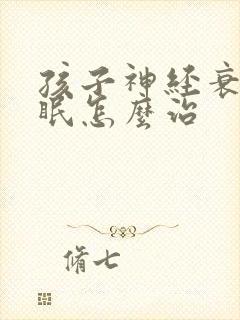 孩子神経衰
眠怎麼治
脩七